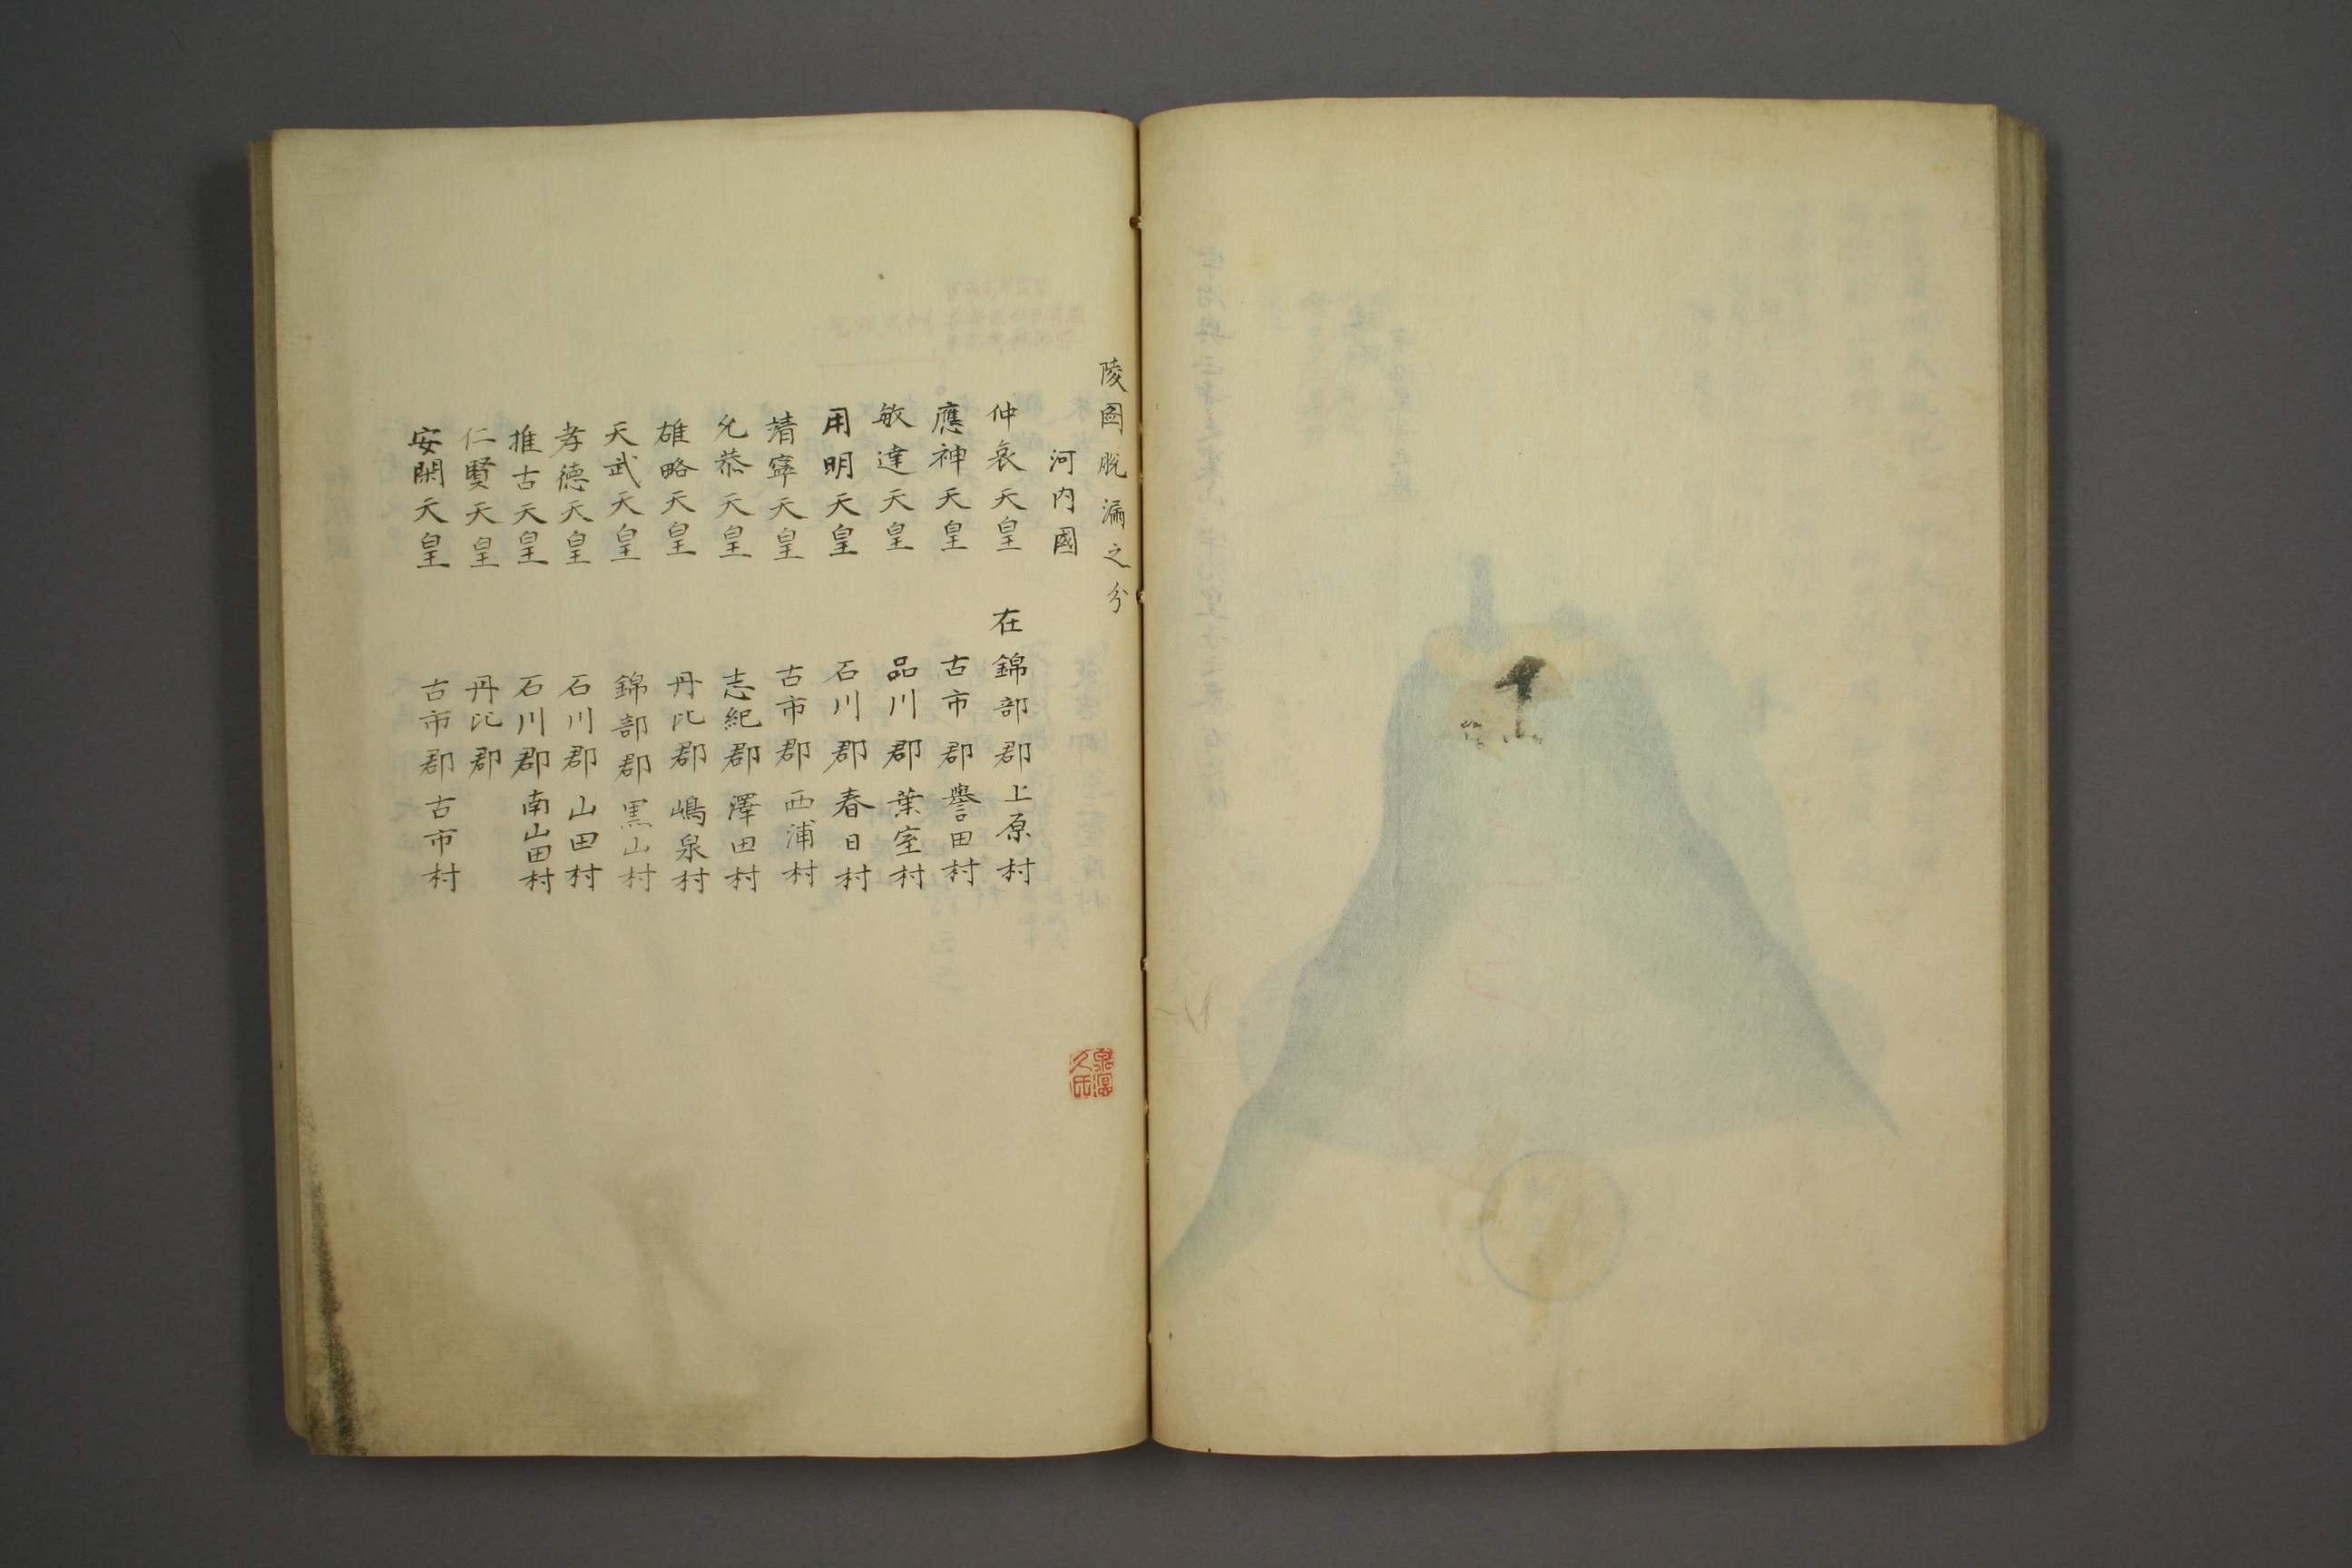 陵圖脱漏之分
河内國
仲哀天皇 在錦部郡上原村
應神天皇 古市郡譽田村
敏達天皇 品川郡葉室村
用明天皇 石川郡春日村
靖寧天皇 古市郡西浦村
允恭天皇 志紀郡澤田村
雄略天皇 丹比郡嶋泉村
天武天皇 錦部郡黒山村
孝德天皇 石川郡山田村
推古天皇 石川郡南山田村
仁賢天皇 丹比郡
安閑天皇 古市郡古市村